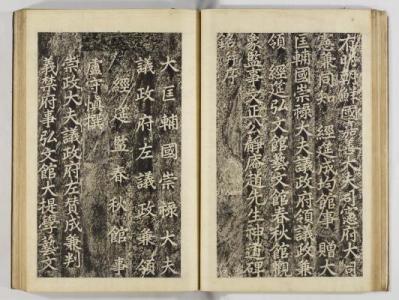 有明朝鮮國大夫司憲府大司
憲兼同知 經筵成均館事 贈大
匡輔國崇祿大夫議政府領議政兼
領 經筵弘文館藝文館春秋館觀
象監事文正公靜庵趙先生神道碑
銘幷序
大匡輔國崇祿大夫
議政府左議政兼領
經筵監春秋館事
盧守愼撰
崇政大夫議政府左贊成兼判
義禁府事弘文館大提學藝文